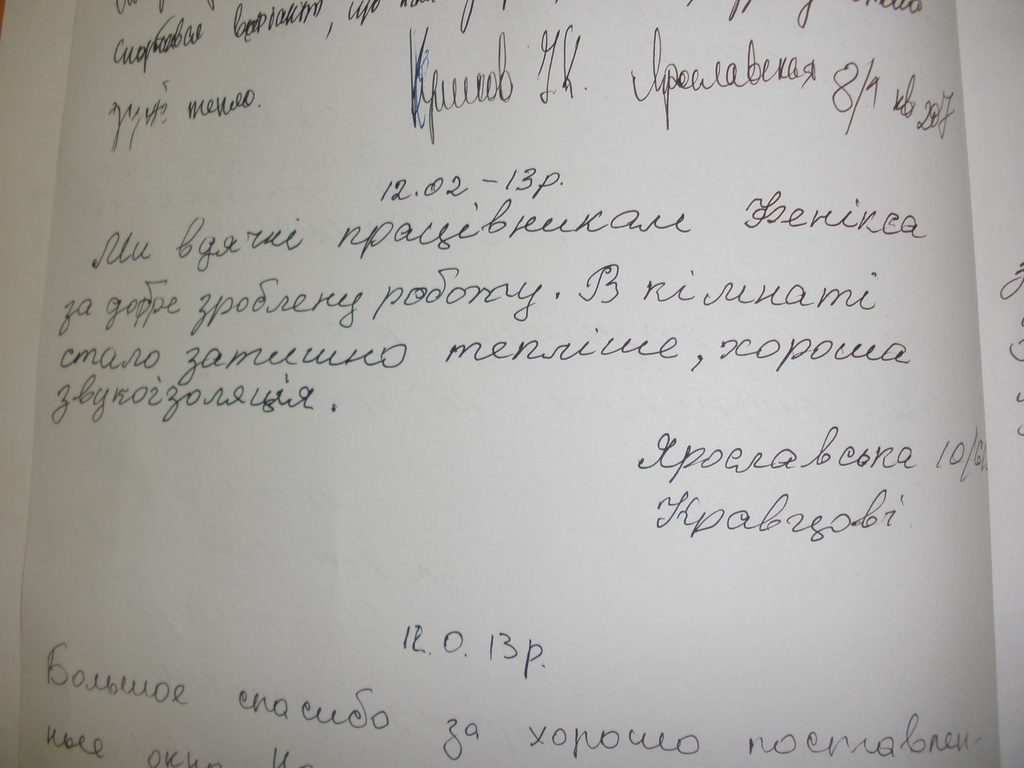 варіант, що
дуже тепло. Куликов У.К. Ярославская 8/1 кв 207
12.02 - 13 р.
Ми вдячні працівникам Фенікса
за добре зроблену роботу. В кімнаті
стало затишно тепліше, хороша
звукоізоляція.
Ярославська 10/
Кравцові
12.0. 13 р.
Большое спасибо за хорошо поставлен-
ные окна